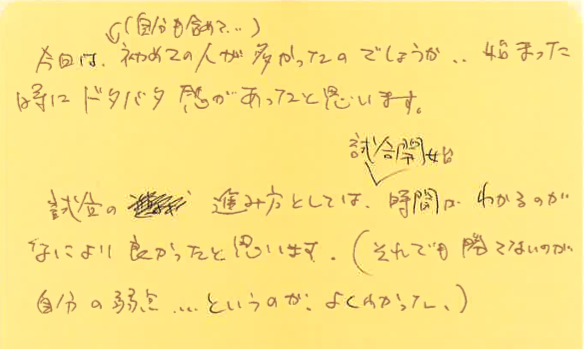 (自分も含めて…)
今回は、初めての人が多かったのでしょうか.. 始まった
時にドタバタ感があったと思います。
試合開始
試合の 進み方としては、時間がわかるのが
なにより良かったと思います。(それでも勝てないのが
自分の弱点…というのが、よくわかった、)